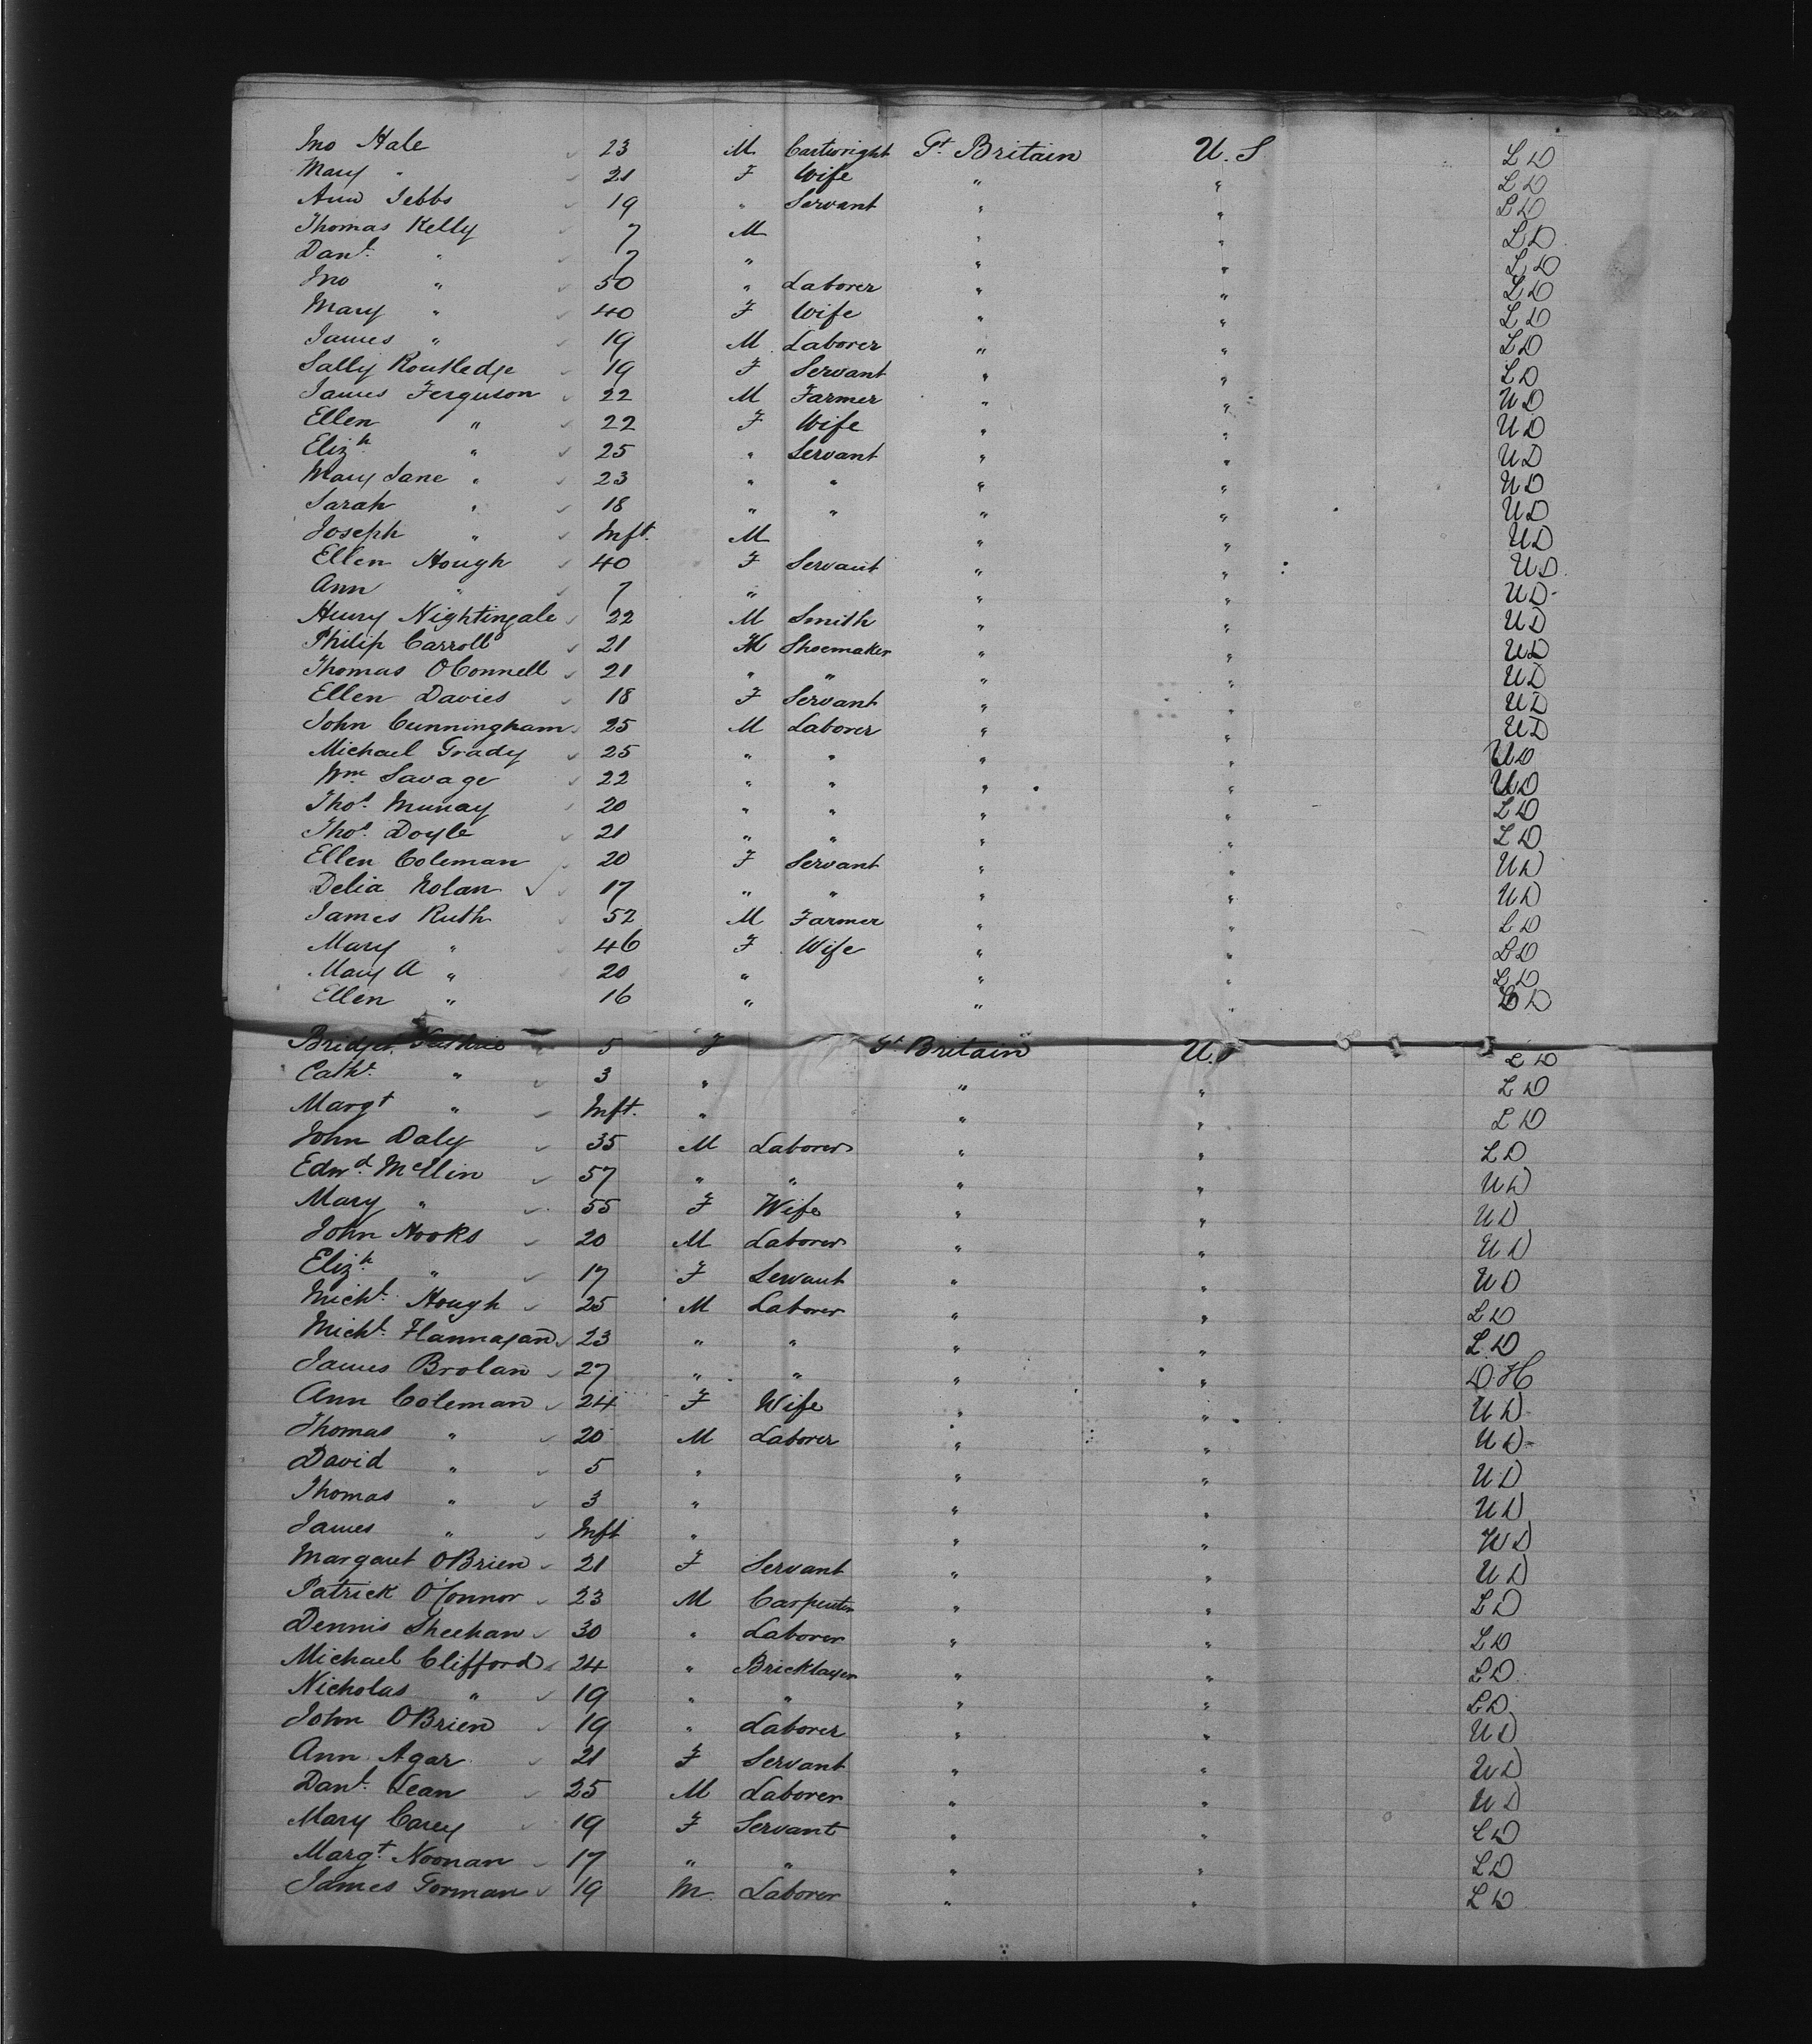 Jno Hale 23 M Cartwright Gt. Britain U. S L D
Mary " 21 F Wife " " L D
Ann Jebbs 19 " Servant " " L D
Thomas Kelly 7 M " " L D
Danl. " 7 " " " L D
Jno " 50 " Laborer " " L D
Mary " 40 F Wife " " L D
James " 19 M Laborer " " L D
Sally Routledge 19 F Servant " " L D
James Ferguson 22 M Farmer " " U D
Ellen " 22 F Wife " " U D
Elizh " 25 " Servant " " U D
Mary Jane " 23 " " " " U D
Sarah " 18 " " " " U D
Joseph " Inft. M " " U D
Ellen Hough 40 F Servant " " U D
Ann " 7 " " " U D
Henry Nightingale 22 M Smith " " U D
Philip Carroll 21 M Shoemaker " " U D
Thomas OConnell 21 " " " " U D
Ellen Davies 18 F Servant " " U D
John Cunningham 25 M Laborer " " U D
Michael Grady 25 " " " " U D
Wm Savage 22 " " " " U D
Thos. Murray 20 " " " " L D
Thos. Doyle 21 " " " " L D
Ellen Coleman 20 F Servant " " U D
Delia Nolan 17 " " " " U D
James Ruth 52 M Farmer " " L D
Mary " 46 F Wife " " L D
Mary A " 20 " " " L D
Ellen " 16 " " " L D
Bridget 5 F Gt Britain U. S L D
Catht. " 3 " " " L D
Margt " Inft. " " " L D
John Daly 35 M Laborer " " L D
Edwd. 57 " " " " U D
Mary " 55 F Wife " " U D
John Hooks 20 M Laborer " " U D
Elizh " 17 F Servant " " U D
Michl. Hough 25 M Laborer " " L D
Michl. Flannagan 23 " " " " L D
James Brolan 27 " " " " D H
Ann Coleman 24 F Wife " " U D
Thomas " 20 M Laborer " " U D
David " 5 " " " U D
Thomas " 3 " " " U D
James " Inft " " " U D
Margaret OBrien 21 F Servant " " U D
Patrick O'Connor 23 M Carpenter " " L D
Dennis Sheehan 30 " Laborer " " L D
Michael Clifford 24 " Bricklayer " " L D
Nicholas " 19 " " " " L D
John OBrien 19 " Laborer " " U D
Ann Agar 21 F Servant " " U D
Danl. Lean 25 M Laborer " " U D
Mary Carey 19 F Servant " " L D
Margt. Noonan 17 " " " " L D
James Gorman 19 M. Laborer " " L D